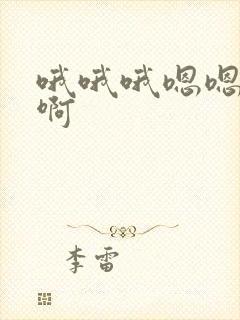 哦哦哦嗯嗯
啊
李雷